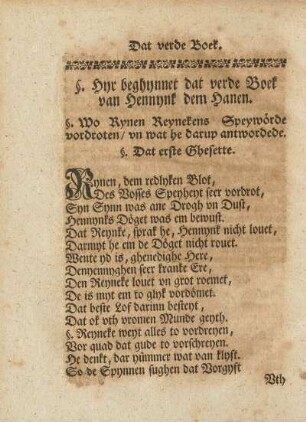 Dat verde Boek.
§. Hyr beghynnet dat verde Boek
van Hennynk dem Hanen.
§. Wo Rynen Reynekens Speywörde
vordroten/ vn wat he darup antwordede.
§. Dat erste Ghesette.
Rynen, dem redlyken Blot,
Des Vosses Speyheyt seer vordrot,
Syn Synn was ane Drogh vn Dust,
Hennynks Döget was em bewust.
Dat Reynke, sprak he, Hennynk nicht louet,
Darmyt he em de Döget nicht rouet.
Wente yd is, ghenedighe Here,
Dennenmyghen seer krankt Ere,
Den Reyneke louet vn grot roemet,
De is myt em to glyk vordömet.
Dat beste Lof darinn besteyt,
Dat ok vth vromen Munde geyth.
§. Reyneke weyt alles to vordreyen,
Vor quad dat gude to vorschreyen.
He denkt, dar yümmer wat van klyft.
So de Spynnen sughen dat Vorgyft
Vth